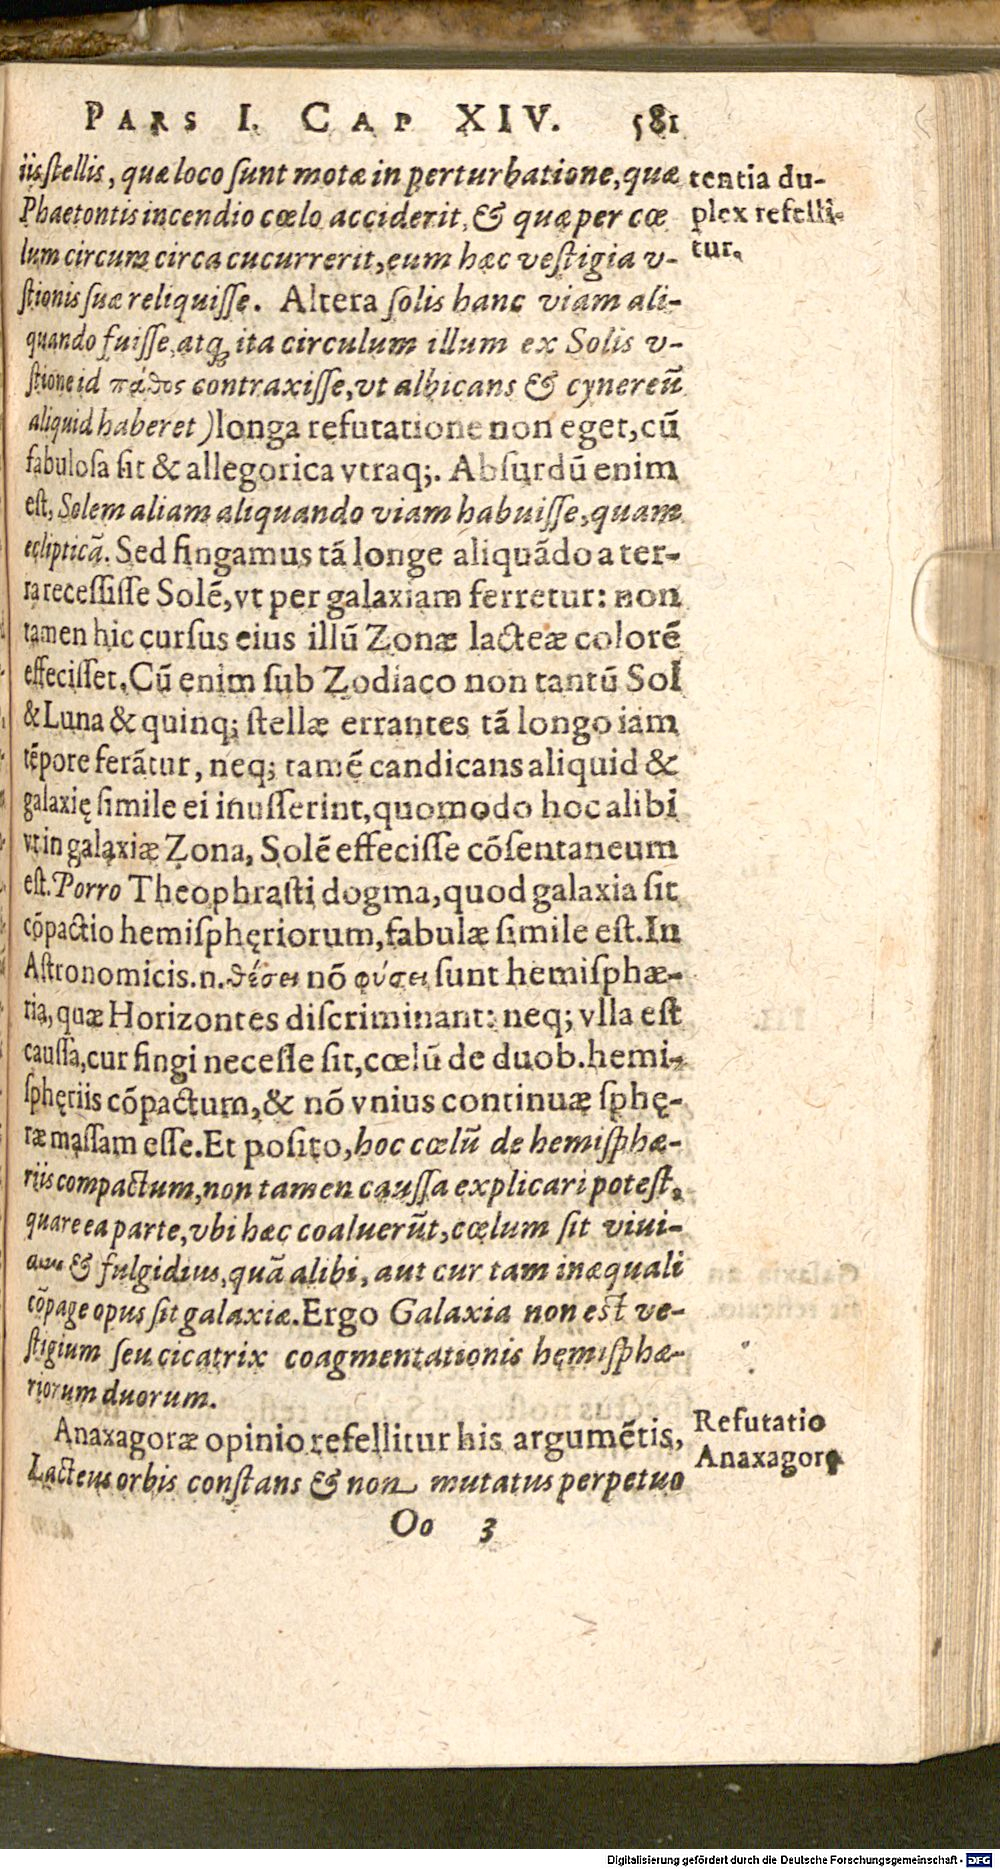 PARS I. CAP XIV. 581
iis stellis, quæ loco sunt motæ in perturbatione, quæ
Phaetontis incendio cœlo acciderit, & quæ per cœ
lum circum circa cucurrerit, eum hæc vestigia v-
stionis suæ reliquisse. Altera solis hanc viam ali-
quando fuisse, atq; ita circulum illum ex Solis v-
stione id πάθος contraxisse, vt albicans & cynereū
aliquid haberet) longa refutatione non eget, cū
fabulosa sit & allegorica vtraq;. Absurdū enim
est, Solem aliam aliquando viam habuisse, quam
eclipticā. Sed fingamus tā longe aliquādo a ter-
ra recessisse Solē, vt per galaxiam ferretur: non
tamen hic cursus eius illū Zonæ lacteæ colorē
effecisset. Cū enim sub Zodiaco non tantū Sol
& Luna & quinq; stellæ errantes tā longo iam
tēpore ferātur, neq; tamē candicans aliquid &
galaxię simile ei inusserint, quomodo hoc alibi
vt in galaxiæ Zona, Solē effecisse cōsentaneum
est. Porro Theophrasti dogma, quod galaxia sit
cōpactio hemisphęriorum, fabulæ simile est. In
Astronomicis .n. θέσει nō φύσει sunt hemisphæ-
ria, quæ Horizontes discriminant: neq; vlla est
caussa, cur fingi necesse sit, cœlū de duob. hemi-
sphęriis cōpactum, & nō vnius continuæ sphę-
ræ massam esse. Et posito, hoc cœlū de hemisphæ-
riis compactum, non tamen caussa explicari potest,
quare ea parte, vbi hæc coaluerūt, cœlum sit viui-
& fulgidius, quā alibi, aut cur tam inæquali
cōpage opus sit galaxiæ. Ergo Galaxia non est ve-
stigium seu cicatrix coagmentationis hemisphæ-
riorum duorum.
Anaxagoræ opinio refellitur his argumētis,
Lacteus orbis constans & non mutatus perpetuo
Oo 3
tentia du-
plex refelli-
tur.
Refutatio
Anaxagorę
Digitalisierung gefördert durch die Deutsche Forschungsgemeinschaft - DFG